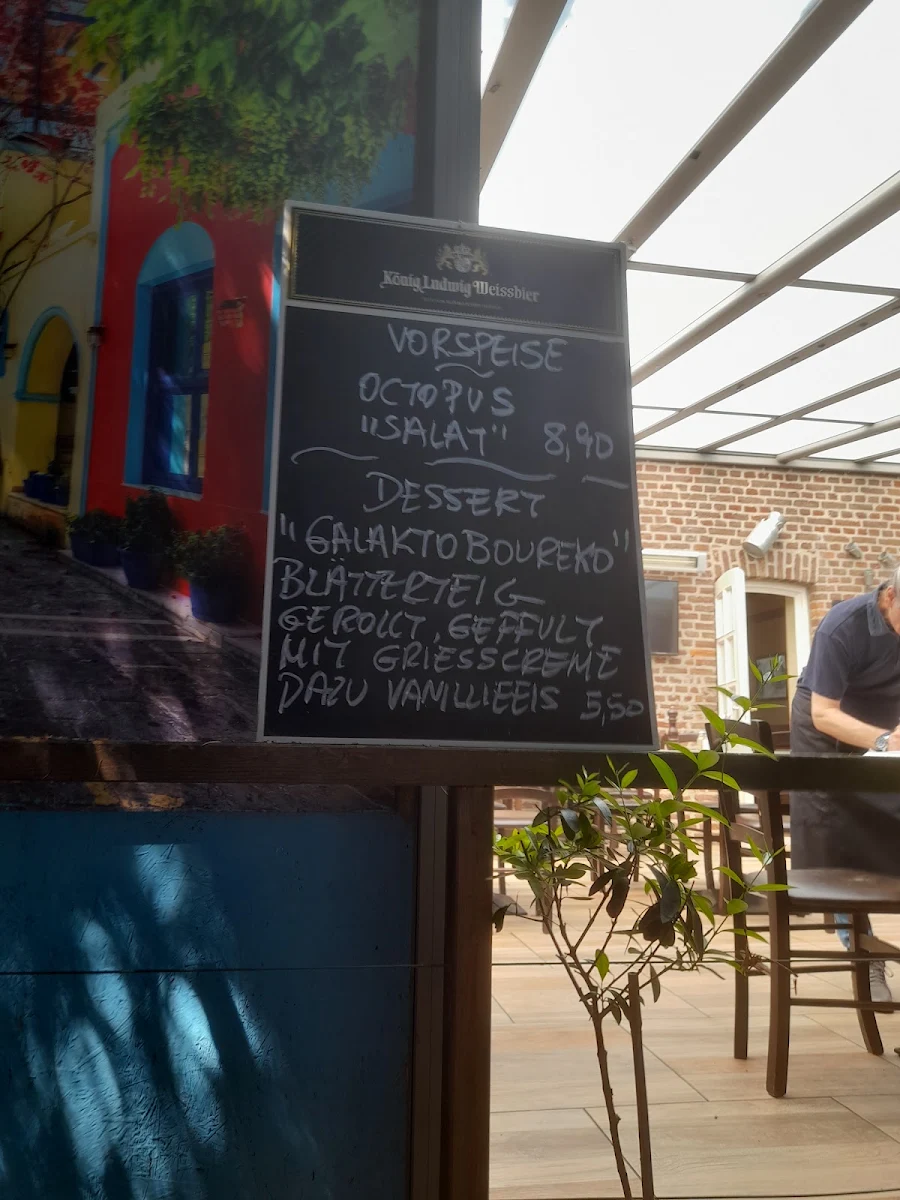 König Ludwig Weissbier
VORSPEISE
OCTOPUS
"SALAT" 8,90
DESSERT
"GALAKTOBOUREKO"
BLÄTTERTEIG
GEROLLT, GEFFÜLT
MIT GRIESSCREME
DAZU VANILLIEEIS 5,50